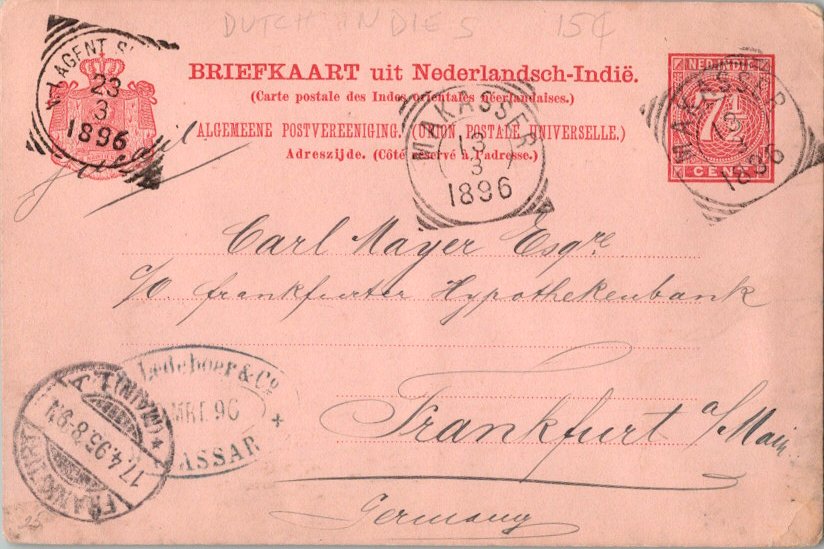 DUTCH INDIES 15¢
BRIEFKAART uit Nederlandsch-Indië.
(Carte postale des Indes orientales néerlandaises.)
ALGEMEENE POSTVEREENIGING. (UNION POSTALE UNIVERSELLE.)
Adreszijde. (Côté réservé à l'adresse.)
NED-INDIE
7½
CENT
AGENT
23
3
1896
MAKASSER
13
3
1896
MAKASSER
13
3
1896
Carl Mayer Esqre
c/o Frankfurter Hypothekenbank
Frankfurt a/Main
Germany
Ledeboer & Co
MRT. 96
ASSAR
FRANKFURT
(MAIN) 1
17.4.95.8-9N